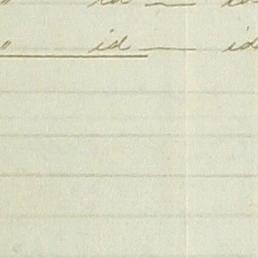 " id — id
" id — id